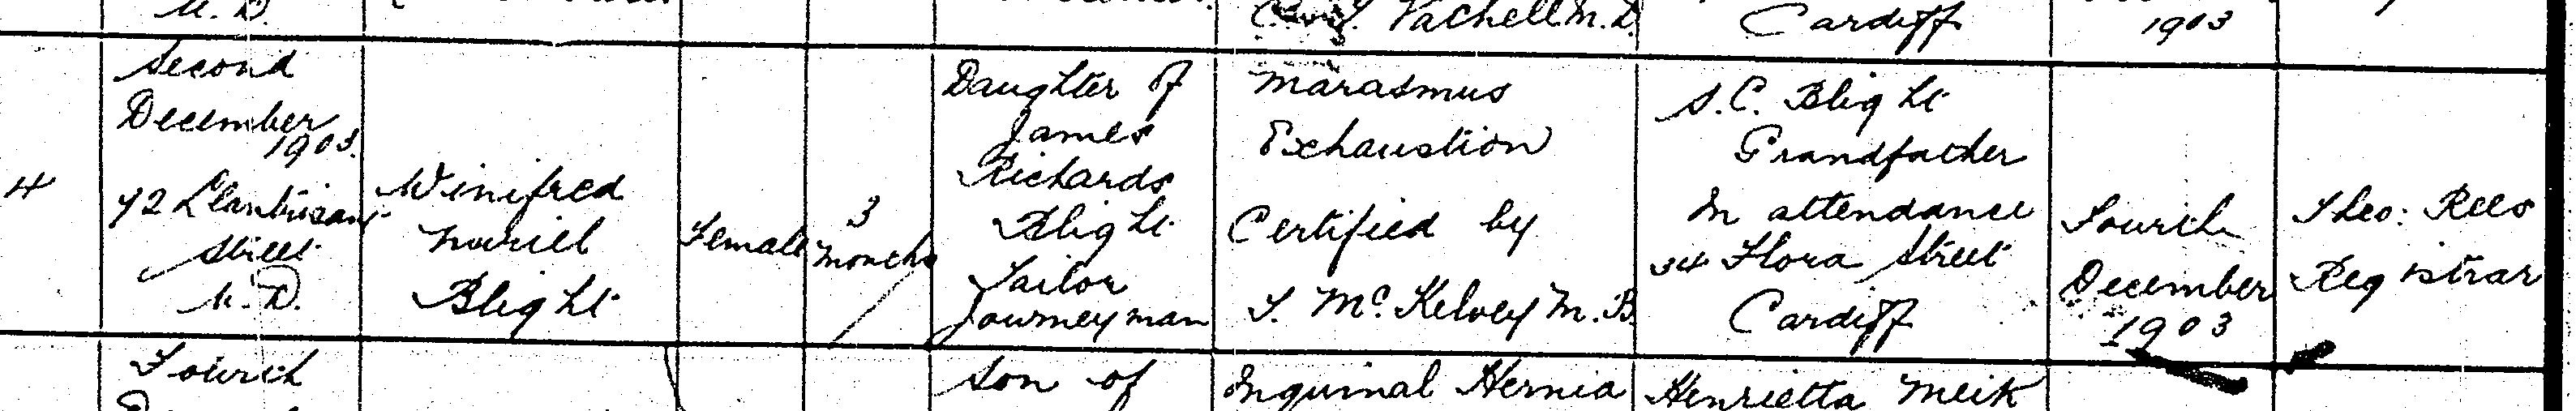 U. D.
Vachell M.D.
Cardiff
1903
4
Second
December
1903.
72 Llantrisant
Street
U. D.
Winifred
Muriel
Blight
Female
3
months
Daughter of
James
Richards
Blight
Tailor
Journeyman
Marasmus
Exhaustion
Certified by
T. McKelvey M.B.
S. C. Blight
Grandfather
In attendance
34 Flora Street
Cardiff
Fourth
December
1903
Theo: Rees
Registrar
Fourth
Son of
Inguinal Hernia
Henrietta Meik